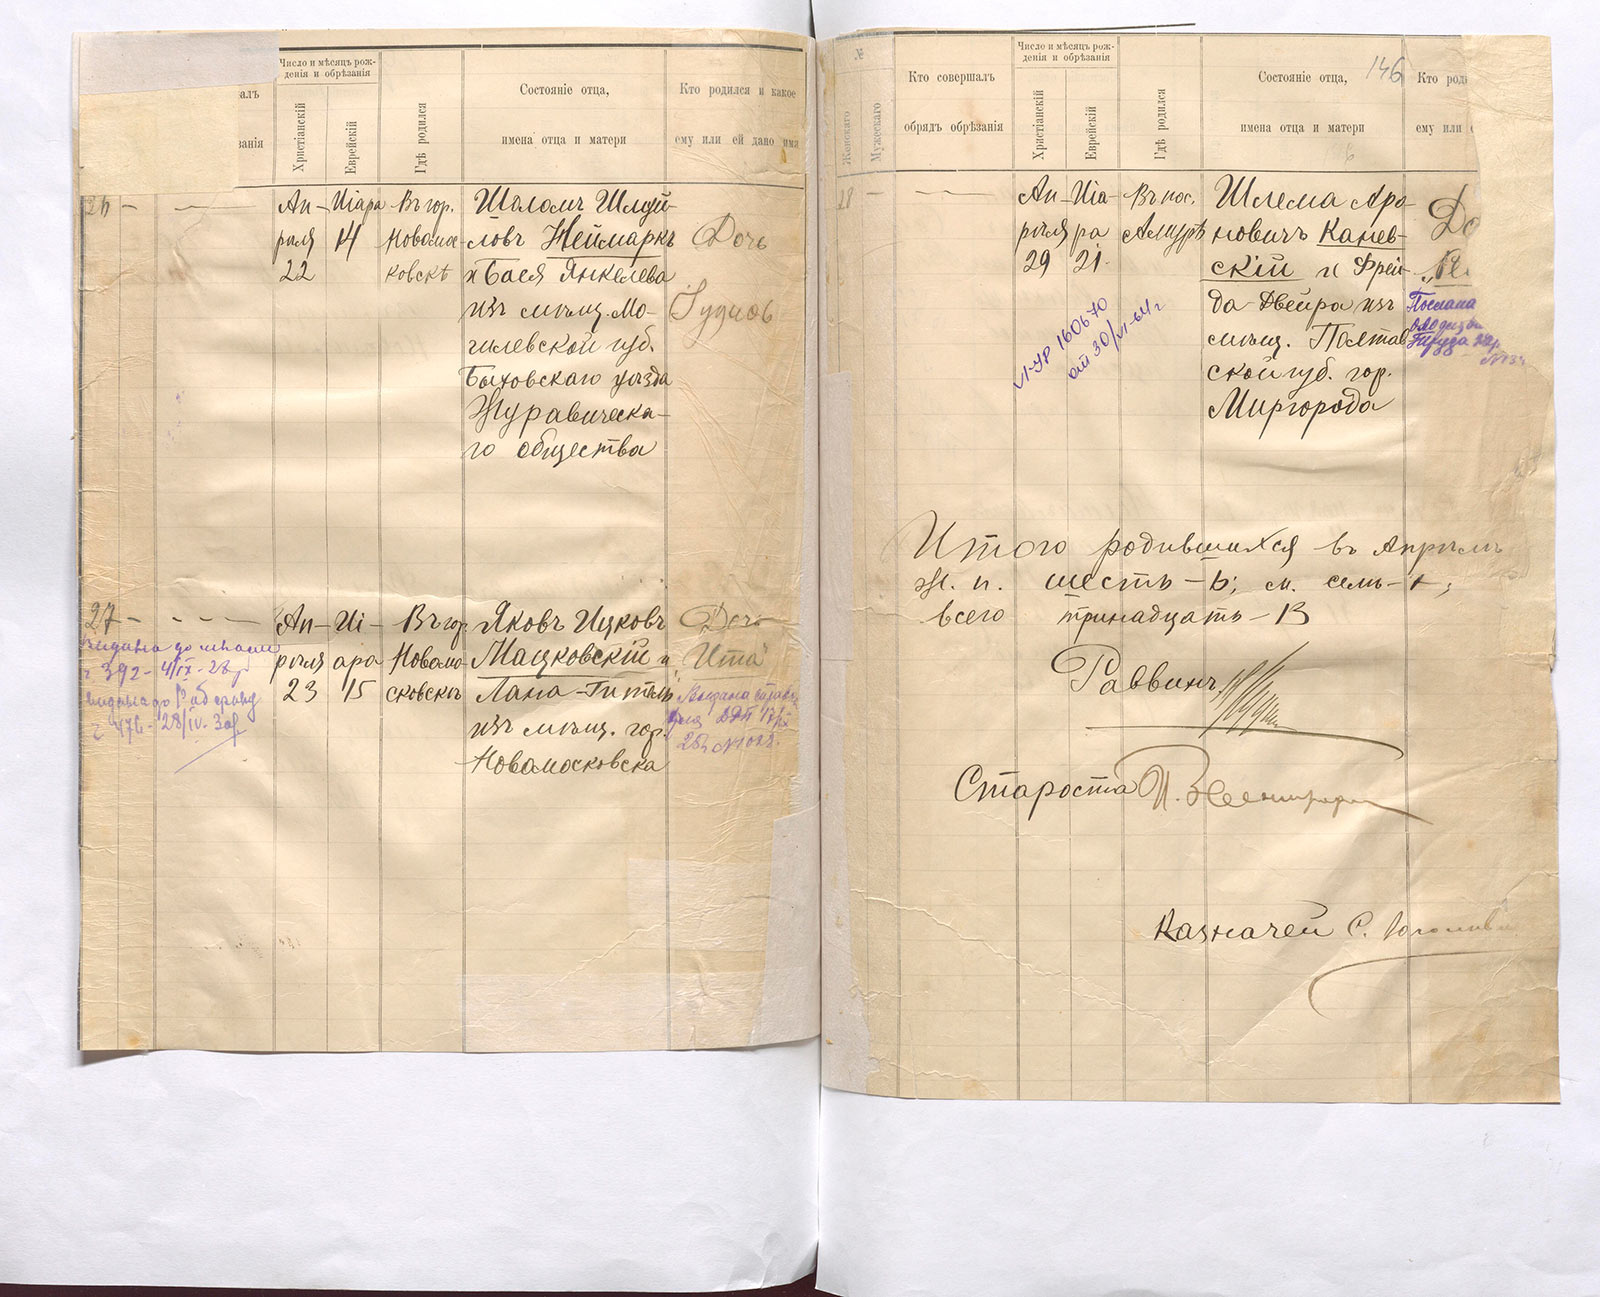 Число и мѣсяцъ рож-
денія и обрѣзанія
алъ
занія
Христіанскій
Еврейскій
Гдѣ родился
Состояніе отца,
имена отца и матери
Кто родился и какое
ему или ей дано имя
26 —
Ап-
рѣля
22
Иіара
14
Въ гор.
Новомос-
ковскѣ
Шоломъ Шмуй-
ловъ Неймаркъ
и Бася Янкелева
изъ мѣщ. Мо-
гилевской губ.
Быховскаго уѣзда
Журавическа-
го общества
Дочь
27 —
4/IX - 28
476 - 28/IV - 30
Ап-
рѣля
23
Иі-
ара
15
Въ гор.
Новомо-
сковскѣ
Яковъ Ицковъ
Мацковскій и
Изъ мѣщ. гор.
Новомосковска
Дочь
„Ита"
№
Женскаго
Мужескаго
Кто совершалъ
обрядъ обрѣзанія
Число и мѣсяцъ рож-
денія и обрѣзанія
Христіанскій
Еврейскій
Гдѣ родился
Состояніе отца,
имена отца и матери
146
Кто роди
ему или
28 —
Ап-
рѣля
29
Иіа-
ра
21
Въ пос.
Амурѣ
Шлема Аро-
новичъ Канев-
скій и Фрей-
да-Двейра изъ
мѣщ. Полтав
ской губ. гор.
Миргорода
До
VI-УР 160670
от 30/VI-64 г
Послана
Итого родившихся въ Апрѣлѣ
ж. п. шесть — 6; м. семь — 7;
всего тринадцать — 13
Раввинъ
Староста
Казначей С.